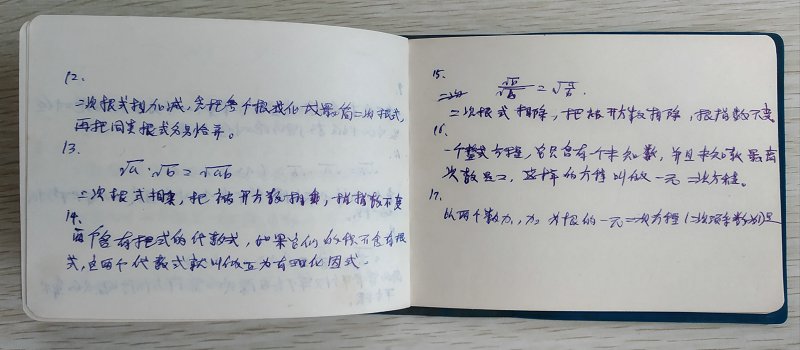 12.
二次根式相加减，先把各个根式化成最简二次根式，
再把同类根式分别合并。
13.
√a·√b=√ab
二次根式相乘，把被开方数相乘，根指数不变
14.
两个含有根式的代数式，如果它们的积不含有根
式，这两个代数式就叫做互为有理化因式。
15.
√a/√b=√a/b.
二次根式相除，把被开方数相除，根指数不变
16.
一个整式方程，它只含有一个未知数，并且未知数最高
次数是二，这样的方程叫做一元二次方程。
17.
以两个数x₁，x₂为根的一元二次方程（二次项系数为1）是